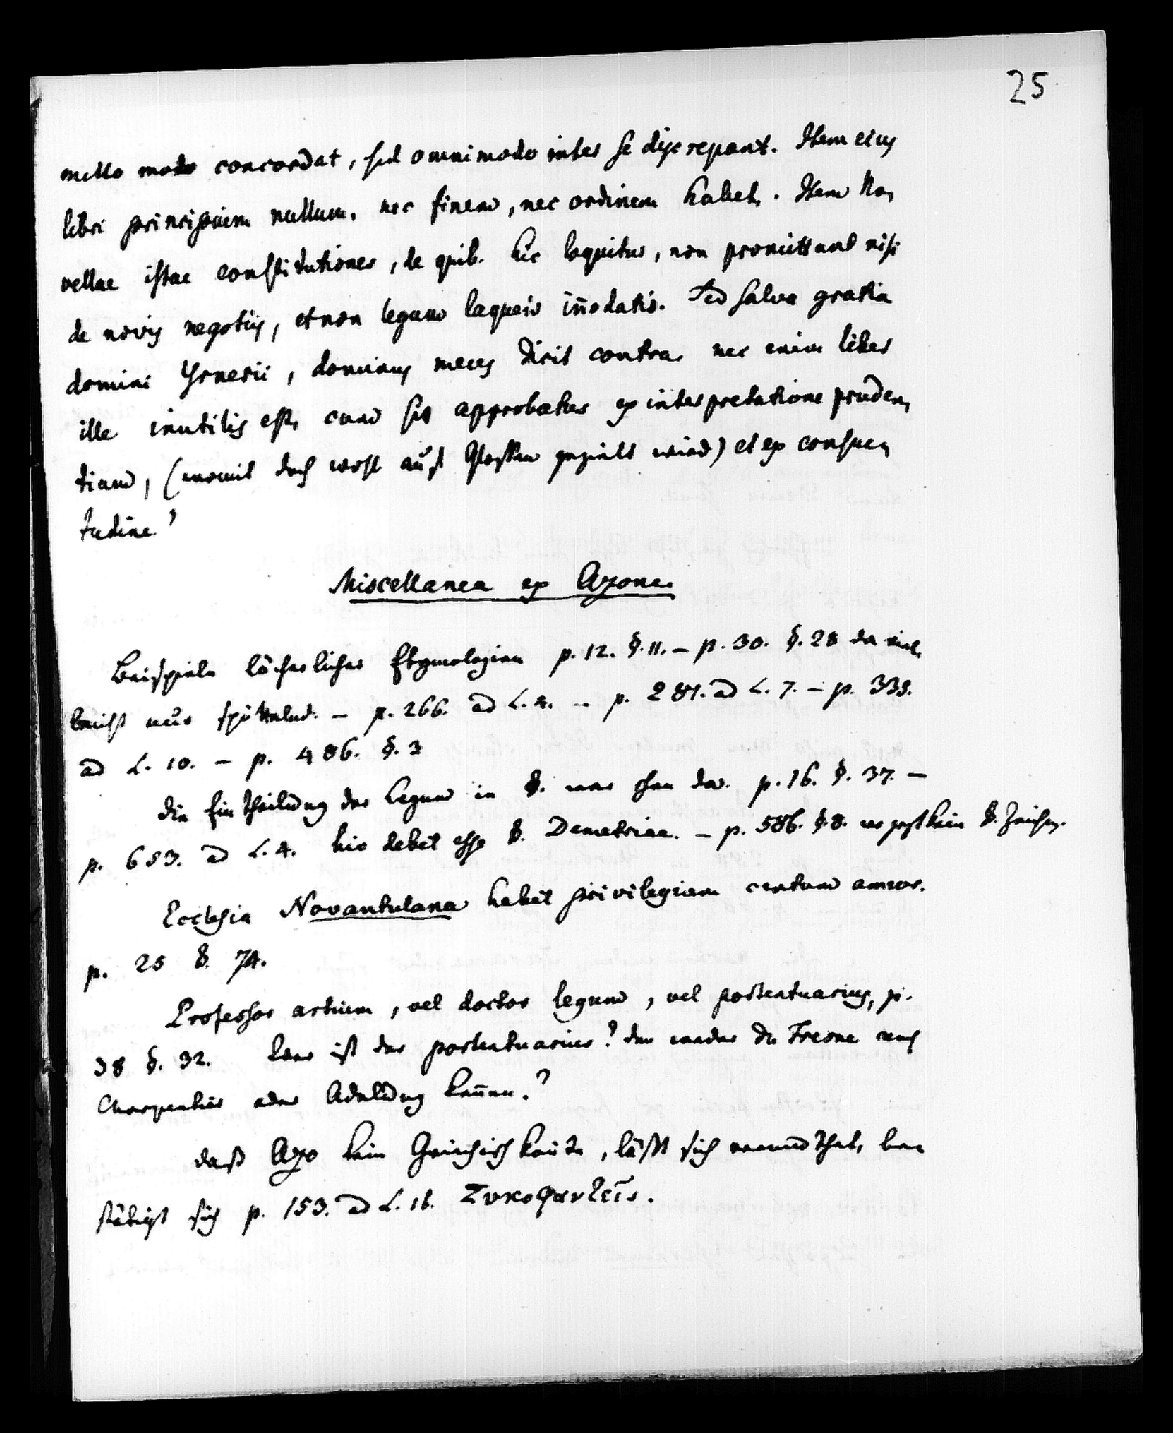 25
nullo modo concordat, sed omnimodo inter se discrepant. Item eius
libri principium nullum, nec finem, nec ordinem habet. Item No,
vellae istae constitutiones, de quib. hic loquitur, non promittunt nisi
de novis negotiis, et non legum laqueis innodatis. Sed salva gratia
domini Yrnerii, dominus meus dicit contra. nec enim liber
ille inutilis est, cum sit approbatus ex interpretatione pruden,
tium, (womit doch wohl auf Glossen gezielt wird) et ex consue,
tudine?
Miscellanea ex Azone.
Beispiele lächerlicher Etymologien p. 12. §. 11. – p. 30. §. 28
p. 266. ad L. 4. – p. 281. ad L. 7. – p. 339.
ad L. 10. – p. 486. §. 3
die Eintheilung der Legum in §. war schon da. p. 16. §. 37. –
p. 653. ad L. 4. hic debet esse §. Demetriae. – p. 586. §. 8. kein §. Zeichen.
Ecclesia Novantulana habet privilegium centum annor.
p. 25 §. 74.
Professor artium, vel doctor legum, vel postentuarius, p.
38 §. 32. Was ist der postentuarius? den weder Du Fresne noch
Charpentier oder Adelung kennen?
daß Azo kein Griechisch konnte, läßt sich vermuthen, be,
stätigt sich p. 153. ad L. 16.